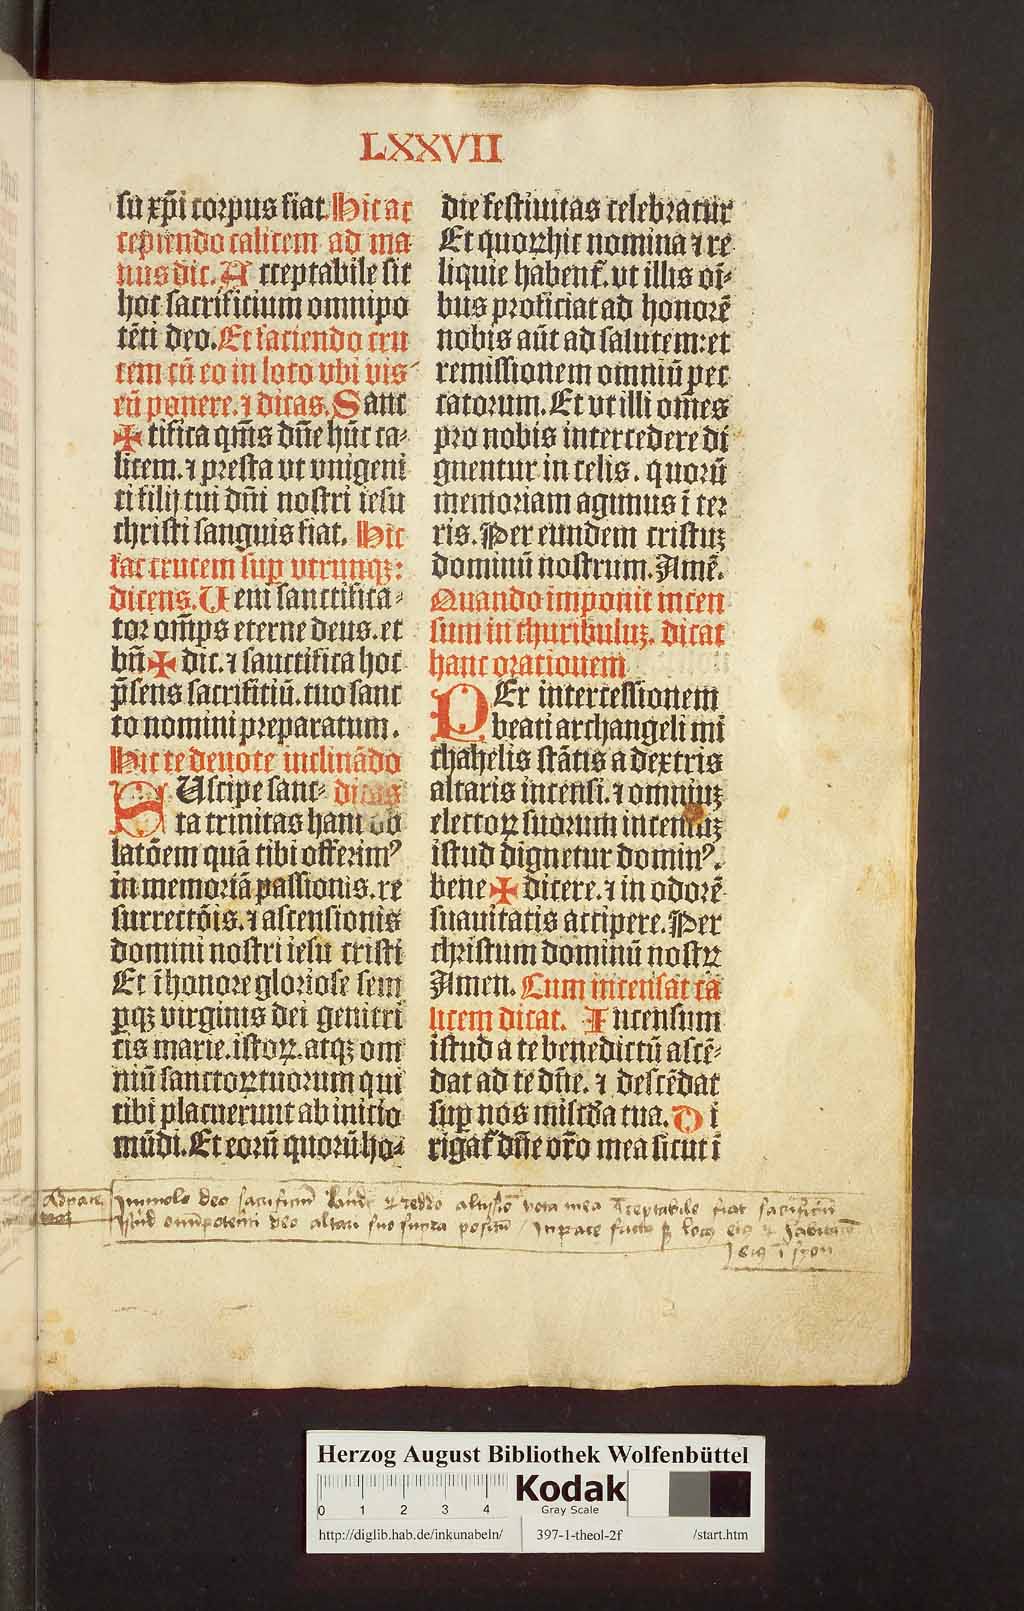 LXXVII
su xp̄i corpus fiat. Hic ac
cepiendo calicem ad ma
nus dic. Acceptabile sit
hoc sacrificium omnipo
tēti deo. Et faciendo cru
cem cū eo in loco vbi vis
eū ponere. ⁊ dicas. Sanc
✠ tifica qm̄s dn̄e hūc ca⸗
licem. ⁊ presta vt vnigeni
ti filij tui dn̄i nostri iesu
christi sanguis fiat. Hic
fac crucem sup̱ vtrunqꝫ:
dicens. Ueni sanctifica⸗
tor om̄ps eterne deus. et
bn̄ ✠ dic. ⁊ sanctifica hoc
p̄sens sacrifitiū. tuo sanc
to nomini preparatum.
Hic te deuote inclinādo
SUscipe sanc⸗ dicas
ta trinitas hanc ob
latōem quā tibi offerimꝰ
in memoriā passionis. re
surrectōis. ⁊ ascensionis
domini nostri iesu cristi
Et ī honore gloriose sem
ꝑqꝫ virginis dei genitri
cis marie. istoꝝ. atqꝫ om
niū sanctoꝝ tuorum qui
tibi placuerunt ab inicio
mūdi. Et eorū quorū ho⸗
die festiuitas celebratur
Et quoꝝ hic nomina ⁊ re
liquie habent̄. vt illis oī⸗
bus proficiat ad honorē
nobis aūt ad salutem: et
remissionem omniū pec
catorum. Et vt illi om̄es
pro nobis intercedere di
gnentur in celis. quorū
memoriam agimus ī ter
ris. Per eundem cristuꝫ
dominū nostrum. Amē.
Quando imponit incen
sum in thuribuluꝫ. dicat
hanc orationem
PEr intercessionem
beati archangeli mi
chahelis stātis a dextris
altaris incensi. ⁊ omniuꝫ
electoꝝ suorum incensuꝫ
istud dignetur dominꝰ.
bene ✠ dicere. ⁊ in odorē
suauitatis accipere. Per
christum dominū nostꝝ
Amen. Cum incensat ca
licem dicat. Incensum
istud a te benedictū ascē⸗
dat ad te dn̄e. ⁊ descēdat
sup̱ nos miscd̄a tua. Di
rigat᷑ dn̄e or̄o mea sicut ī
Ad pacē Immolo deo sacrificiū laudis ⁊ reddo altissīo vota mea Acceptabile fiat sacrificiū
istud omīpotenti deo altari suo supra positū / In pace factꝰ ē locꝰ eiꝰ ⁊ habitacō
eiꝰ ī syon
Herzog August Bibliothek Wolfenbüttel
0 1 2 3 4 Kodak
Gray Scale
http://diglib.hab.de/inkunabeln/ 397-1-theol-2f /start.htm